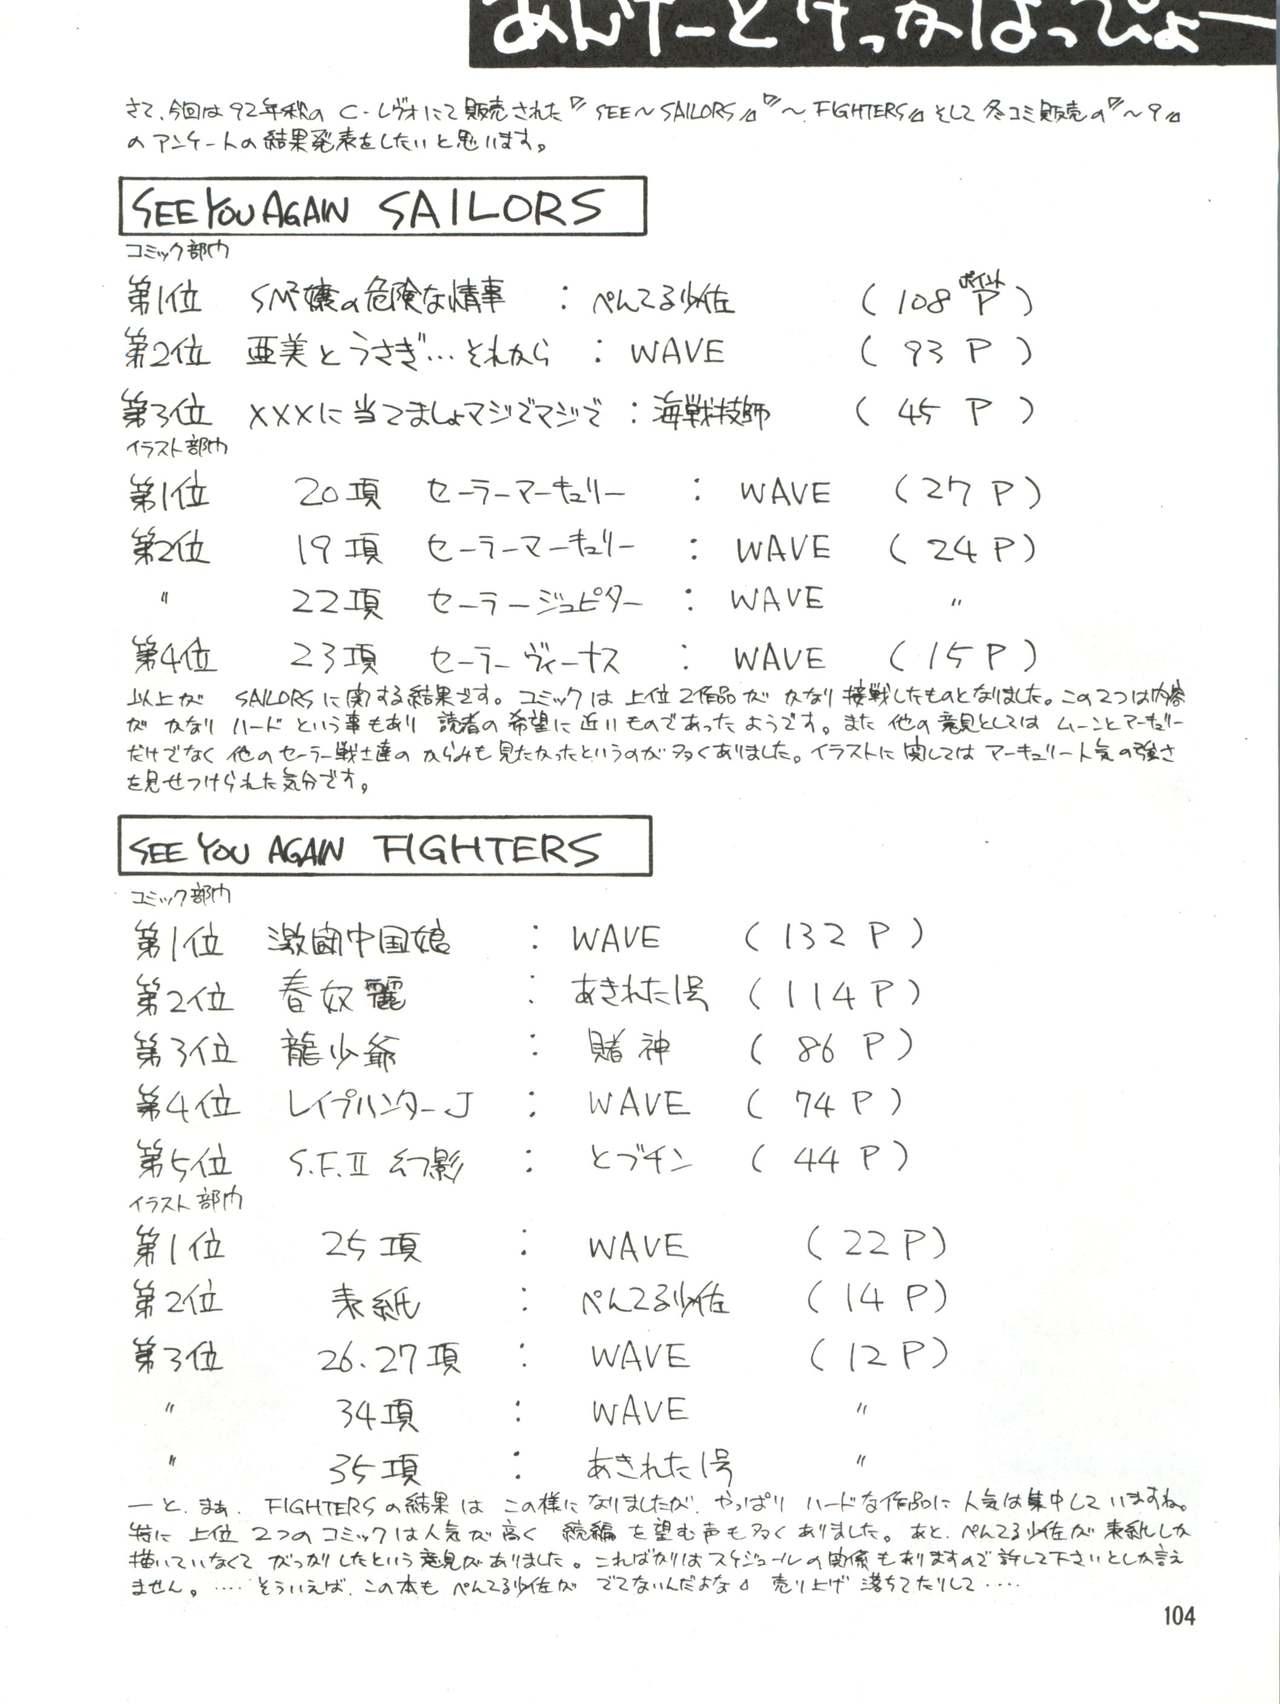 あんけーとけっかはっぴょー
さて、今回は92年秋の C・レヴォにて販売された『SEE～SAILORS』『～FIGHTERS』そして冬コミ販売の『～9』
のアンケートの結果発表をしたいと思います。
SEE YOU AGAIN SAILORS
コミック部門
第1位 SM²嬢の危険な情事 : ぺんてる少佐 (108 Pポイント)
第2位 亜美とうさぎ…それから : WAVE (93 P)
第3位 XXXに当てましょマジでマジで : 海戦技師 (45 P)
イラスト部門
第1位 20項 セーラーマーキュリー : WAVE (27 P)
第2位 19項 セーラーマーキュリー : WAVE (24 P)
〃 22項 セーラージュピター : WAVE 〃
第4位 23項 セーラーヴィーナス : WAVE (15 P)
以上が SAILORSに関する結果です。コミックは上位2作品が かなり接戦したものとなりました。この2つは内容
が かなり ハード という事もあり 読者の希望に近いものであったようです。また 他の意見としては ムーンとマーキュリー
だけでなく 他のセーラー戦士達の からみも見たかったというのが多くありました。イラストに関しては マーキュリー人気の強さ
を見せつけられた気分です。
SEE YOU AGAIN FIGHTERS
コミック部門
第1位 激闘中国娘 : WAVE (132 P)
第2位 春奴麗 : あきれた1号 (114 P)
第3位 龍少爺 : 賭神 (86 P)
第4位 レイプハンターJ : WAVE (74 P)
第5位 S.F.Ⅱ 幻影 : とブチン (44 P)
イラスト部門
第1位 25項 : WAVE (22 P)
第2位 表紙 : ぺんてる少佐 (14 P)
第3位 26.27項 : WAVE (12 P)
〃 34項 : WAVE 〃
〃 35項 : あきれた1号 〃
―と、まぁ、FIGHTERSの結果は この様に なりましたが、やっぱり ハードな作品に 人気は集中して いますね。
特に 上位 2つのコミックは人気が高く 続編 を望む声も多くありました。あと、ぺんてる少佐が 表紙しか
描いていなくて がっかりしたという意見がありました。こればかりはスケジュールの関係もありますので許して下さいとしか言え
ません。…… そういえば、この本も ぺんてる少佐が でてないんだよな。売り上げ 落ちてたりして……
104